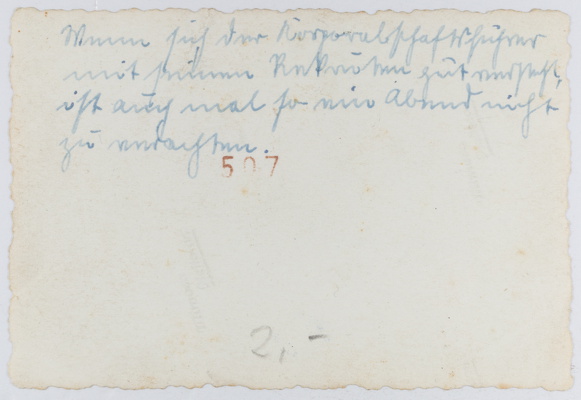 Wenn sich der Korporalschaftsführer
mit seinen Rekruten gut versteht,
ist auch mal so ein Abend nicht
zu verachten.
507
2,-